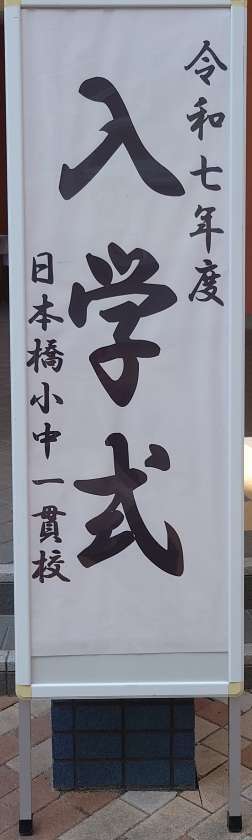 令和七年度
入学式
日本橋小中一貫校